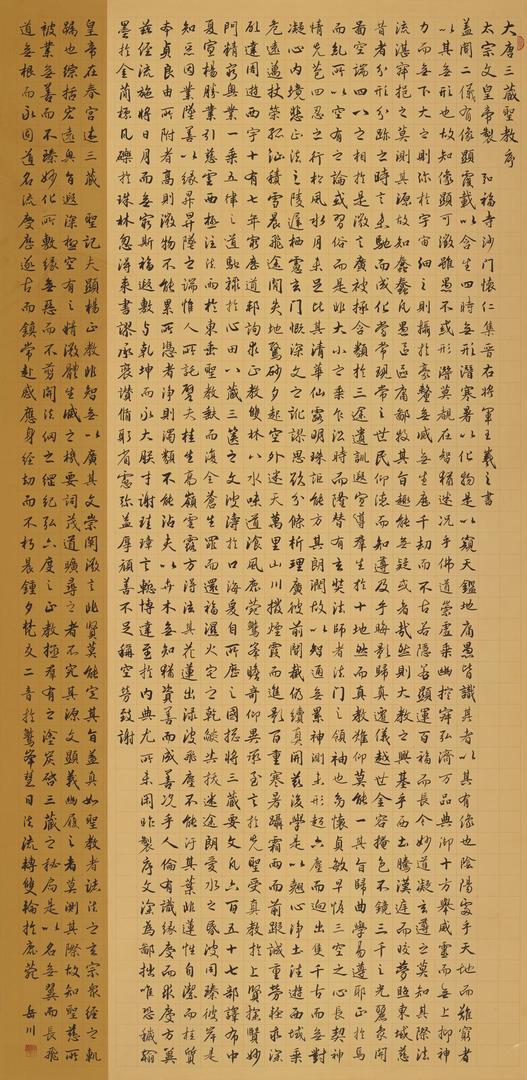 大唐三藏聖教序
太宗文皇帝製 弘福寺沙門懷仁集晉右將軍王羲之書
蓋聞二儀有像顯覆載以含生四時無形潛寒暑以化物是以窺天鑑地庸愚皆識其者以其有像也陰陽處乎天地而難窮者
以其無形也故知像顯可徵雖愚不惑形潛莫覩在智猶迷況乎佛道崇虛乘幽控寂弘濟万品典御十方舉威靈而無上抑神
力而無下大之則弥於宇宙細之則攝於豪釐無滅無生歷千劫而不古若隱若顯運百福而長今妙道凝玄遵之莫知其際法
流湛寂挹之莫測其源故知蠢蠢凡愚區區庸鄙投其旨趣能無疑或者哉然則大教之興基乎西土騰漢庭而皎夢照東域慈
昔者分形分跡之時言未馳而成化當常現常之世民仰德而知遵及乎晦影歸真遷儀越世金容掩色不鏡三千之光麗象開
圖空端四八之相於是微言廣被拯含類於三途遺訓遐宣導羣生於十地然而真教難仰莫能一其旨歸曲學易遵邪正於焉
而糺所以空有之論或習俗而是非大小之乘乍沿時而隆替有玄奘法師者法門之領袖也幼懷貞敏早悟三空之心長契神
情先苞四忍之行松風水月未足比其清華仙露明珠詎能方其朗潤故以智通無累神測未形超六塵而迥出隻千古而無對
凝心內境悲正法之陵遲栖慮玄門慨深文之訛謬思欲分條析理廣彼前聞截偽續真開茲後學是以翹心淨土法遊西域乘
危遠邁杖策孤征積雪晨飛途閒失地驚砂夕起空外迷天萬里山川撥煙霞而進影百重寒暑躡霜雨而前蹤誠重勞輕求深
願達周遊西宇十有七年窮歷道邦詢求正教雙林八水味道湌風鹿菀鷲峯瞻奇仰異承至言於先聖受真教於上賢探賾妙
門精窮奧業一乘五律之道馳驟於心田八藏三篋之文波濤於口海爰自所歷之國揔將三藏要文凡六百五十七部譯布中
夏宣楊勝業引慈雲於西極注法雨於東垂聖教缺而復全蒼生罪而還福濕火宅之乾燄共拔迷途朗愛水之昏波同臻彼岸是
知惡因業墜善以緣昇昇墜之端惟人所託譬夫桂生高嶺雲露方得泫其花蓮出淥波飛塵不能汙其葉非蓮性自潔而桂質
本貞良由所附者高則微物不能累所憑者淨則濁類不能沾夫以卉木無知猶資善而成善況乎人倫有識不緣慶而求慶方冀
茲經流施將日月而無窮斯福遐敷与乾坤而永大朕才謝珪璋言慙博達至於內典尤所未閑昨製序文深為鄙拙唯恐穢翰
墨於金簡標瓦礫於珠林忽得來書謬承褒讚循躬省慮弥益厚顏善不足稱空勞致謝
皇帝在春宮述三藏 聖記夫顯楊正教非智無以廣其文崇闡微言非賢莫能定其旨蓋真如聖教者諸法之玄宗眾經之軌
躅也綜括宏遠奧旨遐深極空有之精微體生滅之機要詞茂道曠尋之者不究其源文顯義幽履之者莫測其際故知聖慈所
被業無善而不臻妙化所敷緣無惡而不剪開法網之綱紀弘六度之正教拯羣有之塗炭啓三藏之秘扃是以名無翼而長飛
道無根而永固道名流慶歷遂古而鎮常赴感應身經劫而不朽晨鍾夕梵交二音於鷲峯慧日法流轉雙輪於鹿菀 岳川